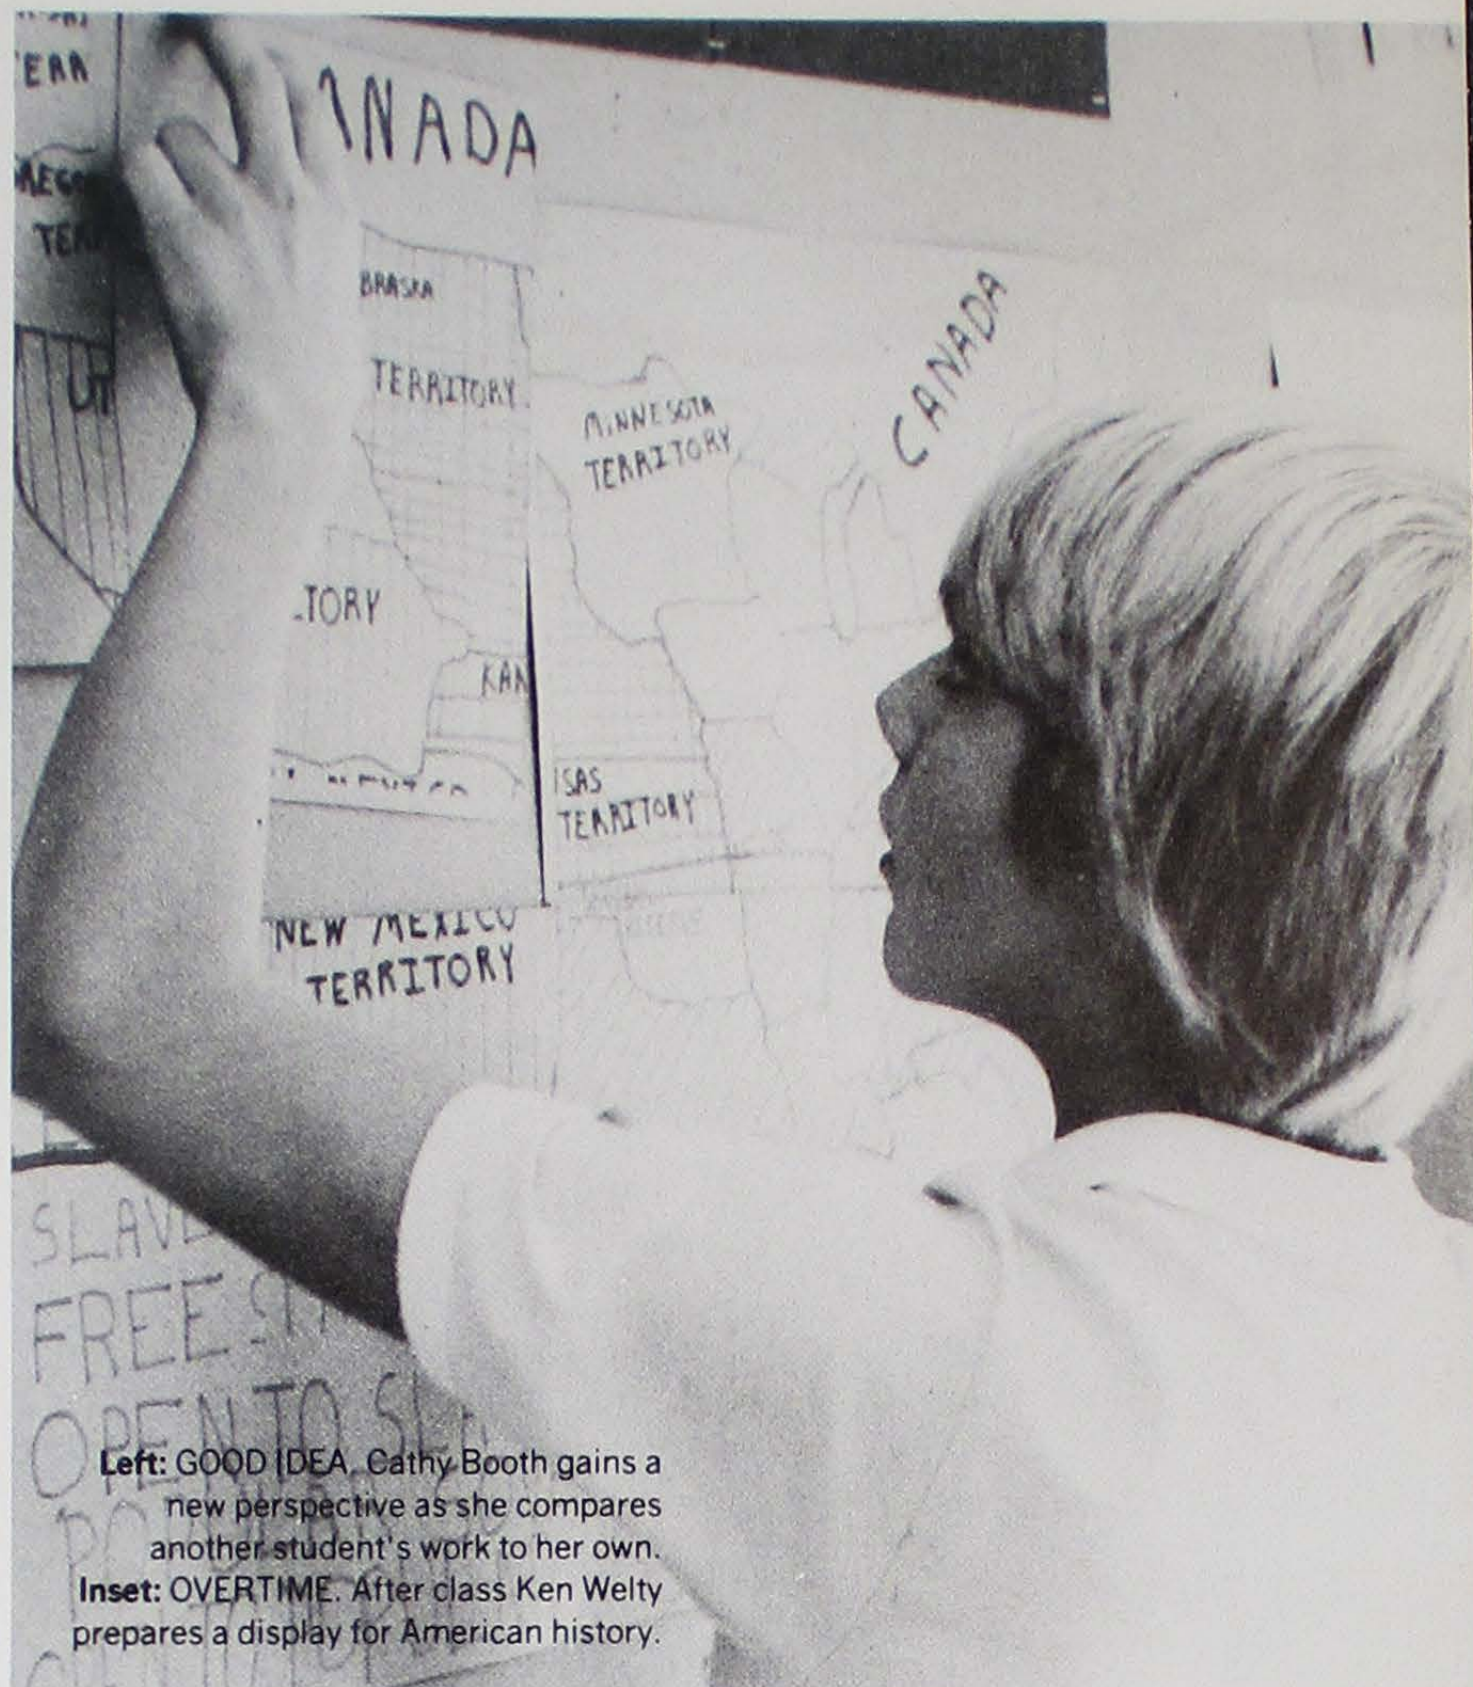 TERR
TERR
UT
CANADA
BRASKA
TERRITORY
MINNESOTA
TERRITORY
CANADA
TORY
KAN
SAS
TERRITORY
NEW MEXICO
TERRITORY
SLAVE
FREE
OPEN TO
Left: GOOD IDEA. Cathy Booth gains a
new perspective as she compares
another student's work to her own.
Inset: OVERTIME. After class Ken Welty
prepares a display for American history.